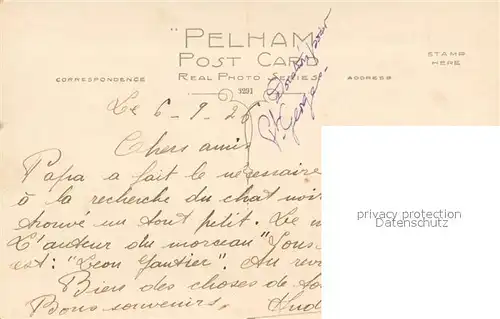 "PELHAM
POST CARD
REAL PHOTO SERIES
CORRESPONDENCE
ADDRESS
STAMP
HERE
3291
Le 6-9-26
Chers amis
Papa a fait le nécessaire
à la recherche du chat noir
trouvé un tout petit. Le
L'auteur du morceau "Sous
est: "Léon Gautier". Au rev
Bien des choses de
Bons souvenirs.
George
privacy protection
Datenschutz